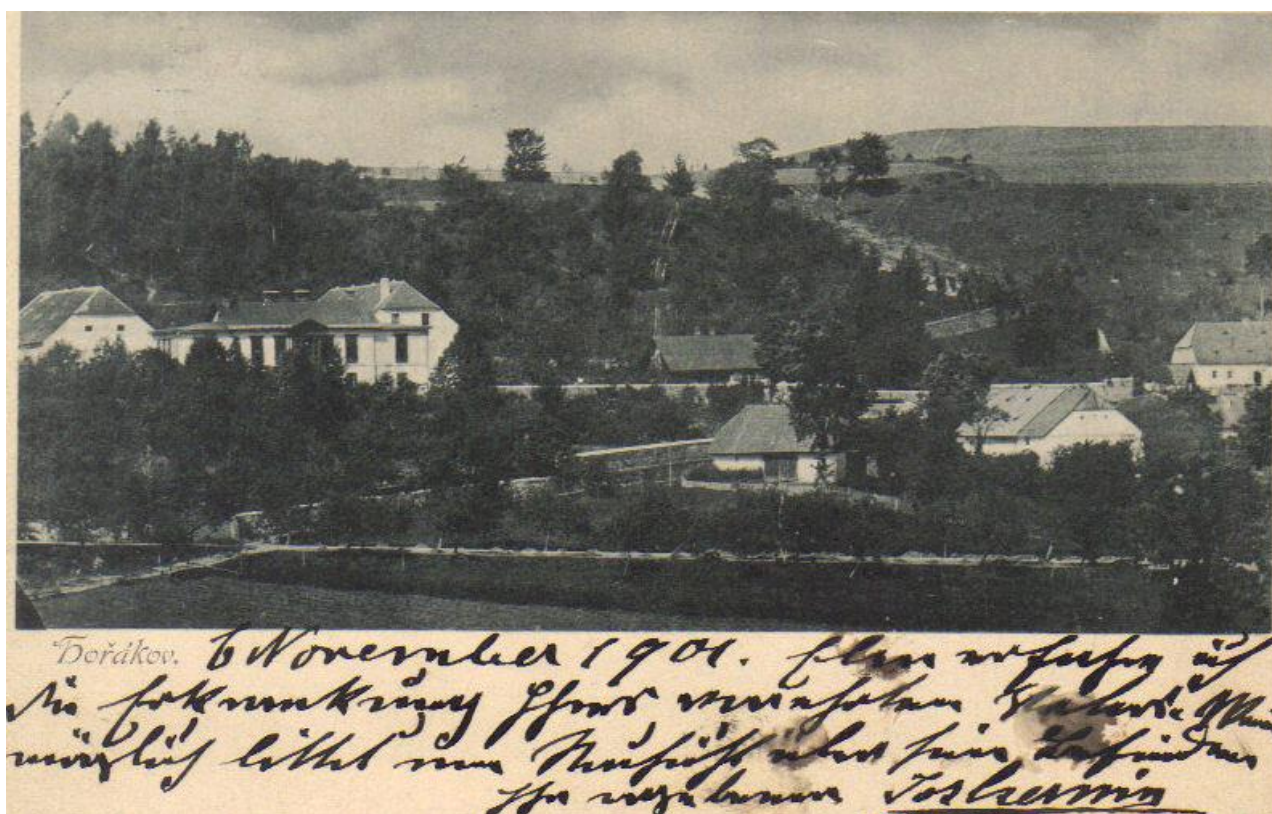 Hořákov. 6 November 1901. Eben erfahre ich
die Erkrankung Ihres verehrten Vaters.
möglich bittet um Nachricht über sein Befinden
Ihr ergebener